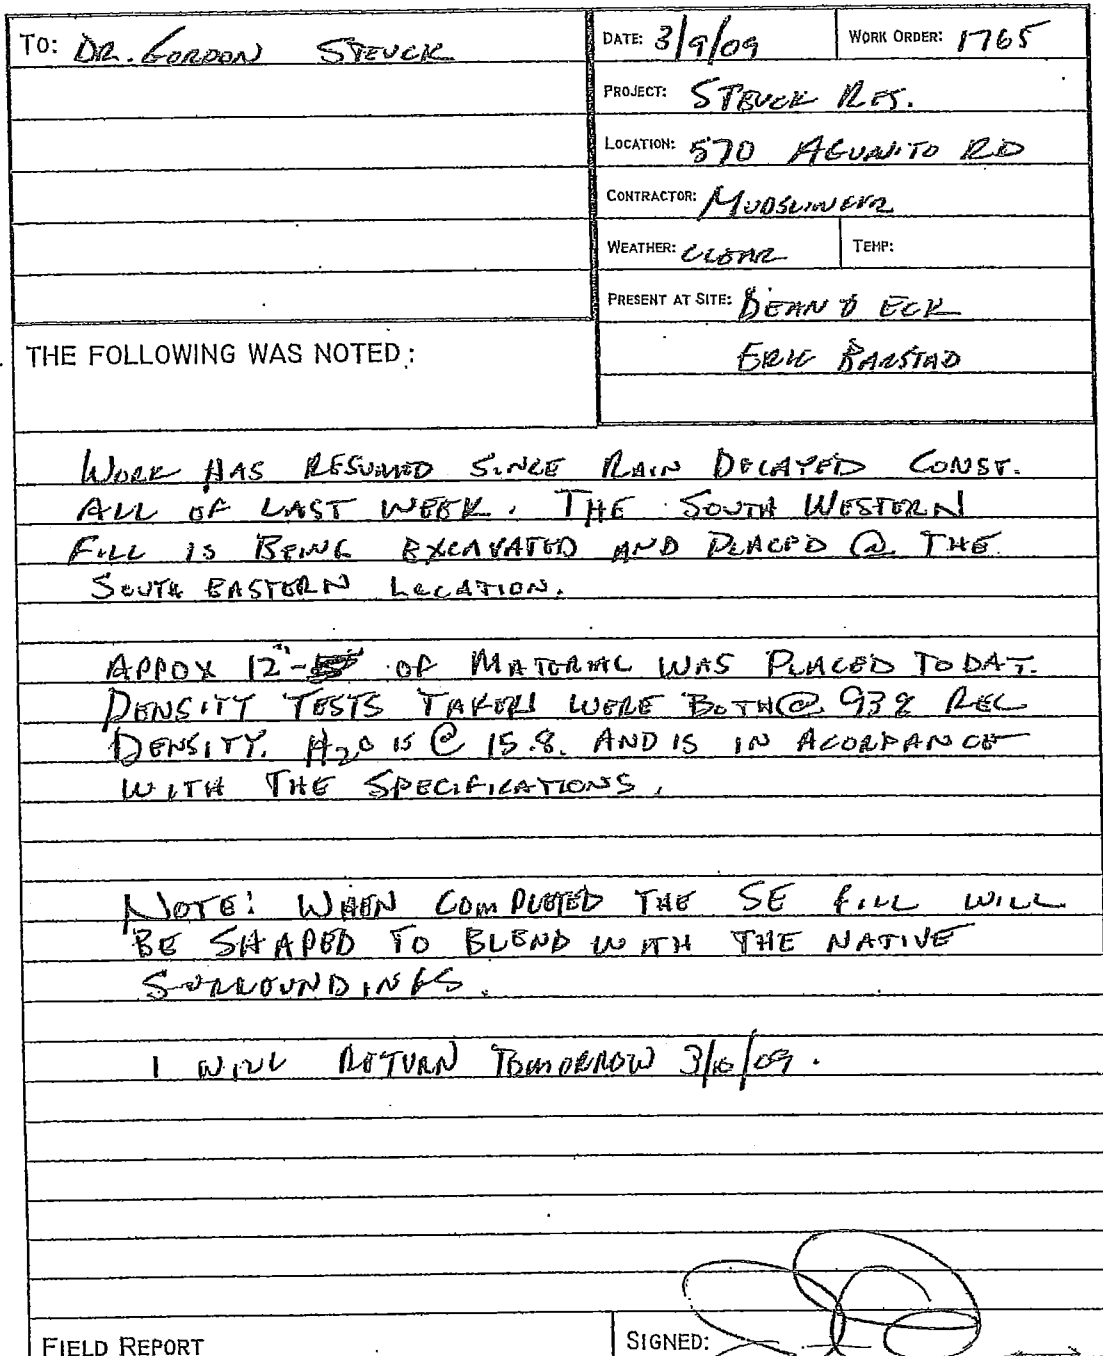 TO: DR. GORDON STEUCK
DATE: 3/9/09
WORK ORDER: 1765
PROJECT: STEUCK RES.
LOCATION: 570 AGUAJITO RD
CONTRACTOR: MUDSLINGER
WEATHER: CLEAR
TEMP:
PRESENT AT SITE: DEAN & ECK
ERIC BARSTAD
THE FOLLOWING WAS NOTED:
WORK HAS RESUMED SINCE RAIN DELAYED CONST.
ALL OF LAST WEEK. THE SOUTH WESTERN
FILL IS BEING EXCAVATED AND PLACED @ THE
SOUTH EASTERN LOCATION.
APPOX 12"- OF MATERIAL WAS PLACED TODAY.
DENSITY TESTS TAKEN WERE BOTH @ 93% REL
DENSITY. H2O IS @ 15.8. AND IS IN ACORDANCE
WITH THE SPECIFICATIONS.
NOTE: WHEN COMPLETED THE SE FILL WILL
BE SHAPED TO BLEND WITH THE NATIVE
SURROUNDINGS.
I WILL RETURN TOMORROW 3/10/09.
FIELD REPORT
SIGNED: